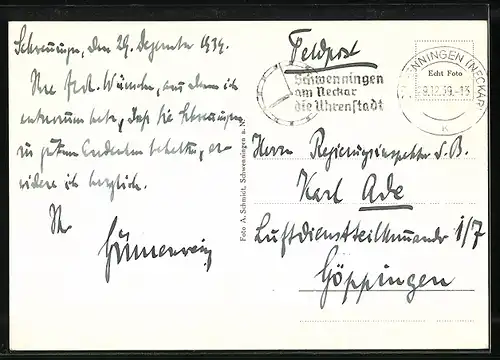 Schwenningen, den 29. Dezember 1939.
Ihre frdl. Wünsche, aus denen ich
entnommen habe, daß Sie Schwenningen
zu gutem Andenken behalten, er-
widere ich herzlich.
Ihr
Foto A. Schmidt, Schwenningen a. N.
Feldpost
Schwenningen
am Neckar
die Uhrenstadt
SCHWENNINGEN (NECKAR)
Echt Foto
29.12.39.-13
K
Herrn Regierungsinspektor d. B.
Karl Ade
Luftdienstteilkommando 1/7
Göppingen